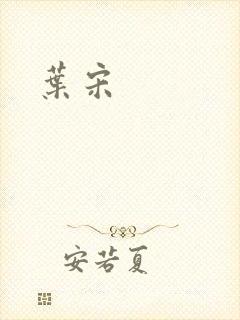 葉宋
安若夏